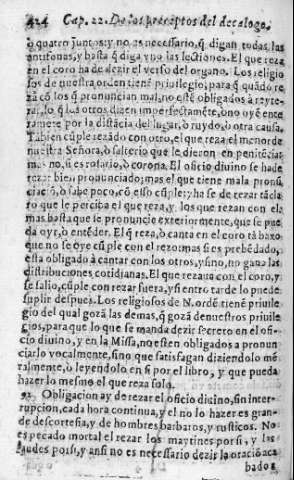 424 Cap. 22. De los preceptos del decalogo.
ò quatro juntos: y no es necessario, q̃ digan todas, las
antifonas, y basta q̃ diga vno las lectiones. El que reza
en el coro ha de dezir el verso del organo. Los religio
sos de nuestra ordẽ tienẽ priuilegio, para q̃ quãdo re
zã cõ los q̃ pronuncian mal, no estẽ obligados à reyte-
rar, lo q̃ los otros dizen imperfectamẽte, ono oyẽ ente
ramẽte por la distãcia del lugar, ò ruydo, ò otra causa,
Tãbien cũple rezãdo con otro, el que reza el menor de
nuestra Señora, ò salterio que le dieron en penitẽcia:
mas no, si es rosario, ò corona. El oficio diuino se ha de
rezar bien pronunciado; mas el que tiene mala pronũ
ciaciõ, ò sabe poco, cõ esso cũple: y ha se de rezar tã cla
ro que le perciba el que reza, y los que rezan con el:
mas basta que se pronuncie exteriormente, que se pue
da oyr, ò entẽder. El q̃ reza, ò canta en el coro tã baxo
que no se oye cũple con el rezo: mas si es prebẽdado,
està obligado à cantar con los otros, y sino, no gana las
distribuciones cotidianas. El que rezaua con el coro, y
se salio, cũple con rezar fuera, y si entro tarde lo puede
suplir despues. Los religiosos de N. ordẽ tienẽ priuile
gio del qual gozã las demas, q̃ gozã de nuestros priuile
gios, para que lo que se manda dezir secreto en el ofi-
cio diuino, y en la Missa, no estẽn obligados a pronun
ciarlo vocalmente, sino que satisfagan diziendolo mẽ
talmente, ò leyendolo en si por el libro, y que pueda
hazer lo mesmo el que reza solo.
Obligacion ay de rezar el oficio diuino, sin inter-
rupcion, cada hora continua, y el no lo hazer es gran-
de descortesia, y de hombres barbaros, y rusticos. No
es pecado mortal el rezar los maytines por si, y las
laudes por si, y ansi no es necessario dezir la oraciõ aca
bados